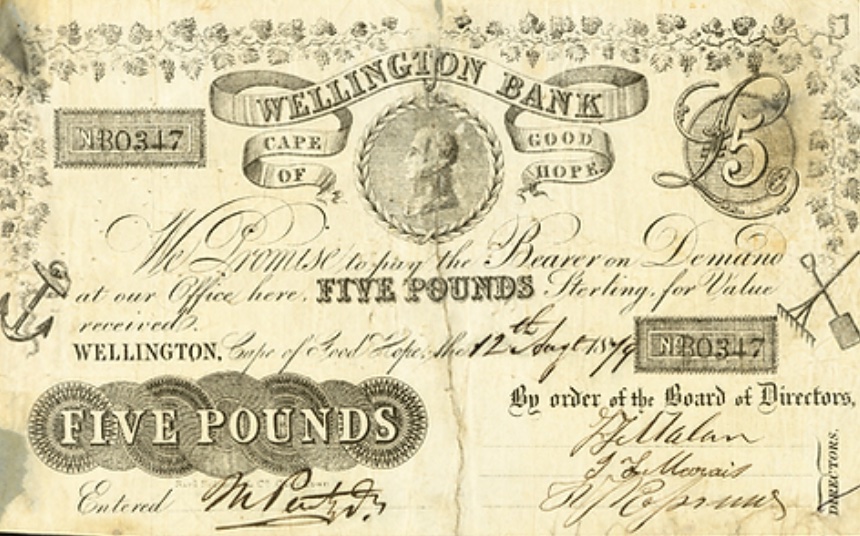 WELLINGTON BANK
CAPE OF GOOD HOPE.
No B0347
£5
We Promise to pay the Bearer on Demand
at our Office here, FIVE POUNDS Sterling, for Value
received.
WELLINGTON, Cape of Good Hope, the 12th Augt 1879
No B0347
FIVE POUNDS
By order of the Board of Directors,
Entered
DIRECTORS.